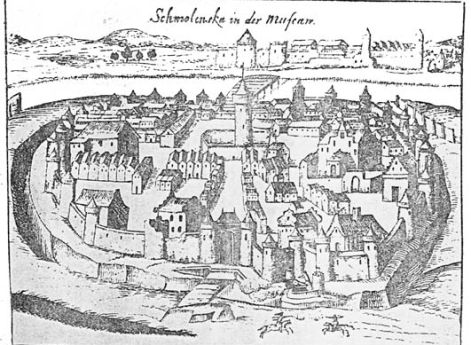 Schmolenska in der Muscaw.